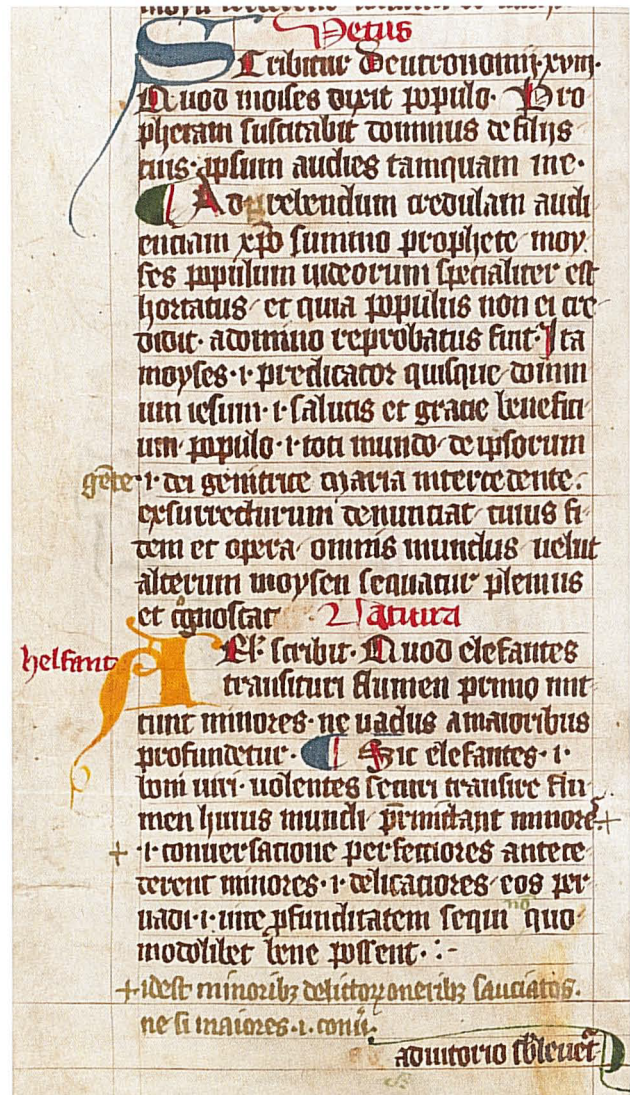 Vetus
Scribitur Deutronomij xviij.
Quod moises dixit populo. Pro
phetam suscitabit dominus de filijs
tuis. ipsum audies tamquam me.
Ad prebendum credulam audi
enciam xpo summo prophete moy
ses populum iudeorum specialiter est
hortatus et quia populus non ei cre
didit. adomino reprobatus fuit. Ita
moyses .i. predicator quisque domin
um iesum .i. salutis et gracie benefici
um populo .i. toti mundo de ipsorum
gēte .i. dei genitrice maria intercedente.
exsurrecturum denunciat cuius fi
dem et opera omnis mundus uelut
alterum moysen sequatur plenius
et cognoscat Natura
helfant
Ael. scribit. Quod elefantes
transituri flumen primo mit
tunt minores. ne uadus amaioribus
profundetur. Sic elefantes .i.
boni uiri uolentes securi transire flu
men huius mundi premittant minores +
+ .i. conuersacione perfectiores antece
derent minores .i. delicaciores eos per
uadi .i. uite profunditatem sequi quo
modolibet bene possent. :-
+ idest minoribus delictorum oneribus sauciatos.
ne si maiores .i. conu.
adiutorio